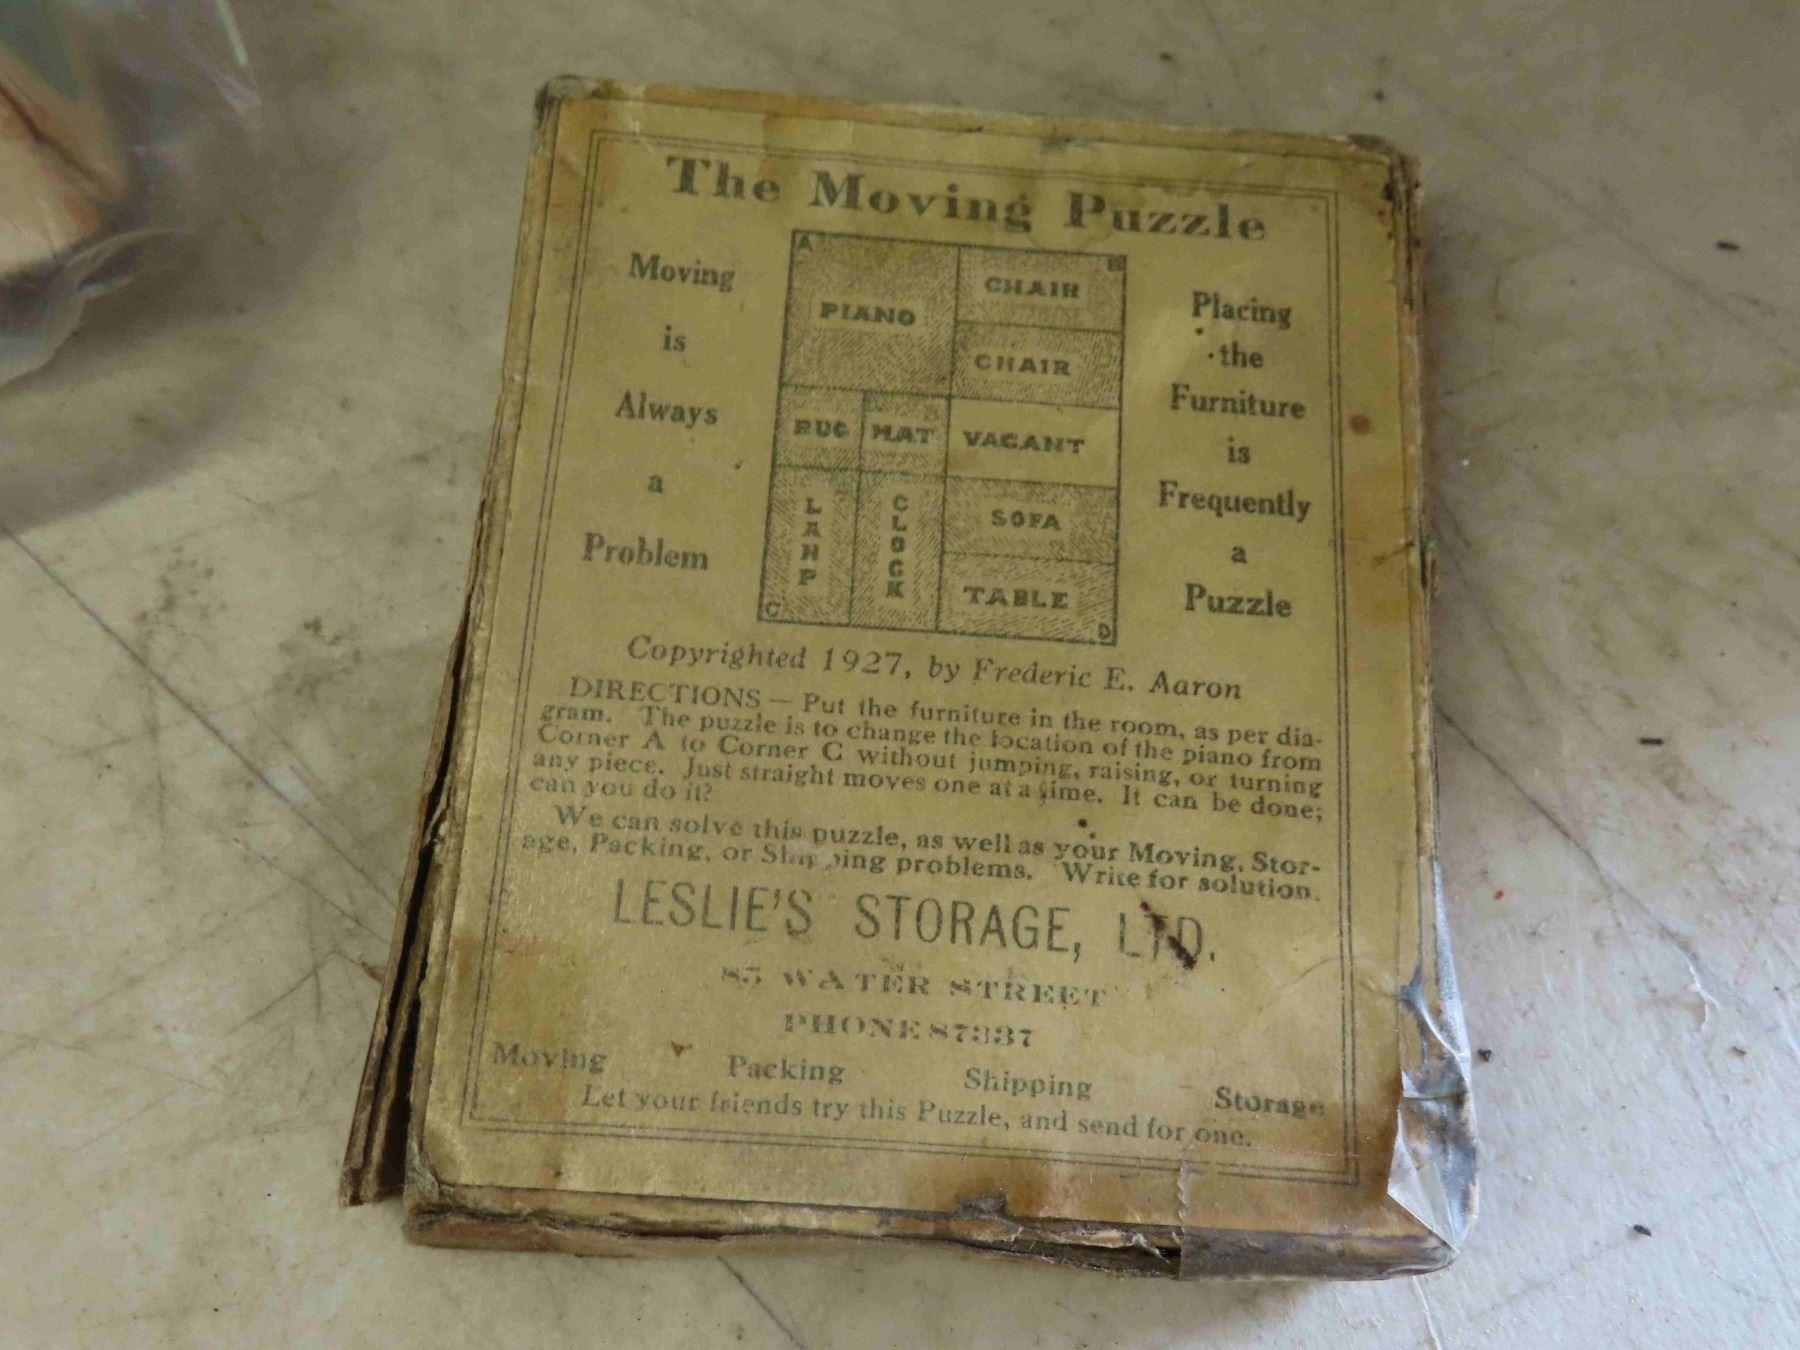 The Moving Puzzle
Moving
is
Always
a
Problem
A
B
PIANO
CHAIR
CHAIR
RUG
MAT
VACANT
LAMP
CLOCK
SOFA
TABLE
C
D
Placing
the
Furniture
is
Frequently
a
Puzzle
Copyrighted 1927, by Frederic E. Aaron
DIRECTIONS — Put the furniture in the room, as per dia-
gram. The puzzle is to change the location of the piano from
Corner A to Corner C without jumping, raising, or turning
any piece. Just straight moves one at a time. It can be done;
can you do it?
We can solve this puzzle, as well as your Moving, Stor-
age, Packing, or Shipping problems. Write for solution.
LESLIE'S STORAGE, LTD.
85 WATER STREET
PHONE 87337
Moving Packing Shipping Storage
Let your friends try this Puzzle, and send for one.